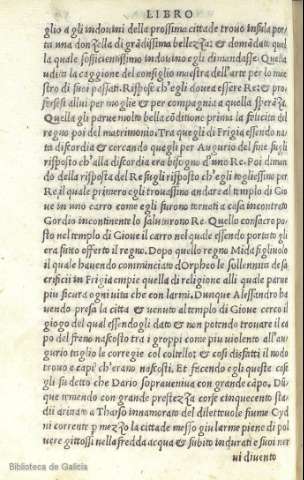 LIBRO
glio a gli indouini della prossima cittade trouo insula por
ta una donzella di grãdissima bellezza: & domãdato quel
la quale sofficientissimo indouino egli dimandasse. Quella
udita la caggione del consiglio maestra dell'arte per lo mae
stro di suoi passati. Rispose ch'egli douea essere Re: & pro
ferse si alui per moglie & per compagnia a quella sperãza.
Quella gli parue molto bella cõditione prima la felicita del
regno poi del matrimonio. Tra quegli di Frigia essendo na
ta discordia & cercando quegli per Augurio del fine fu gli
risposto ch'alla discordia era bisogno d'uno Re. Poi diman
do della risposta del Re fu gli risposto ch'egli togliessino per
Re il quale primero egli trouassino andare al templo di Gio
ue in uno carro come egli furono tornati a casa incontreto
Gordio incontinente lo salutorono Re. Quello consacro po
sto nel tempio di Gioue il carro nel quale essendo portato gli
era suto offerto il regno. Dopo quello regno Mida figliuolo
il quale hauendo comminciato d'Orpheo le sollennita de sa
crificii in Frigia empie quella di religione alli quale parue
piu sicura ogni uita che con larmi. Dunque Alessandro ha
uendo presa la citta & uenuto al tempio di Gioue cerco il
giogo del qual essendogli dato & non potendo trouare il ca
po del freno nascosto tra i groppi come piu uiolento all'au
gurio taglio le corregie col coltello: & cosi disfatti il nodo
trouo e capi ch'erano nascosti. Et fecendo egli queste cose
gli fu detto che Dario soprauenina con grande cãpo. Dũ
que temendo con grande prestezza corse cinquecento sta
dii ariuato a Tharso innamorato del diletteuole fiume Cyd
ni corrente per mezzo la cittade messo giu larme pieni di pol
uere gittossi nella fredda acqua & subito indurati e suoi ner
ui diuento
Biblioteca de Galicia